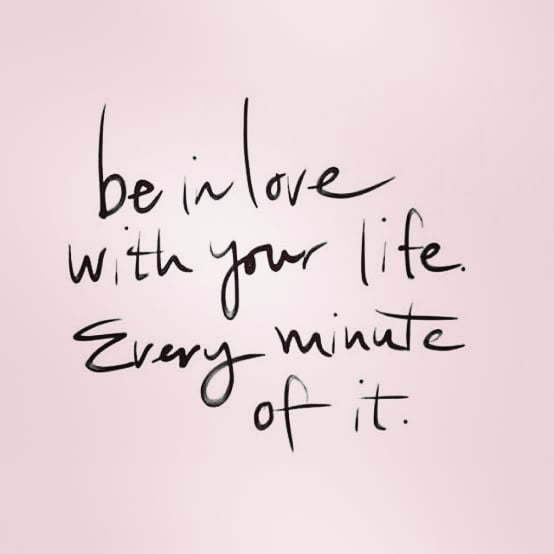 be in love
with your life.
Every minute
of it.